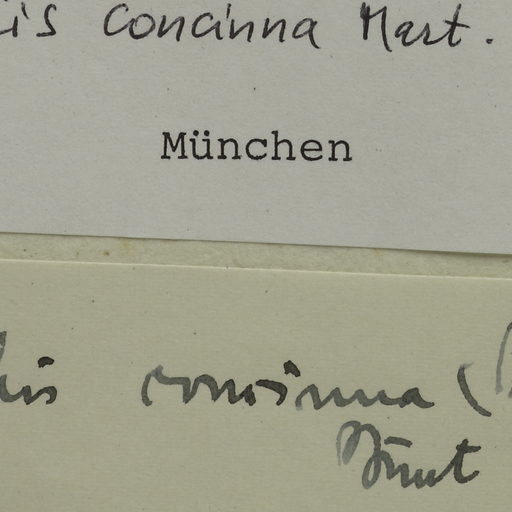 is concinna Mart.
München
his concinna (